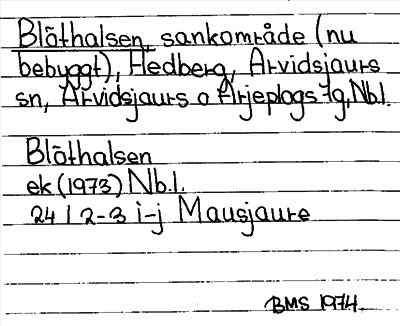 Blöthalsen, sankområde (nu
bebyggt), Hedberg, Arvidsjaurs
sn, Arvidsjaurs o Arjeplogs tg, Nbl.
Blöthalsen
ek (1973) Nb.l.
24 I 2-3 i-j Mausjaure
BMS 1974.